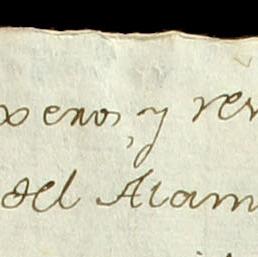 xeros, y ren
del Alam